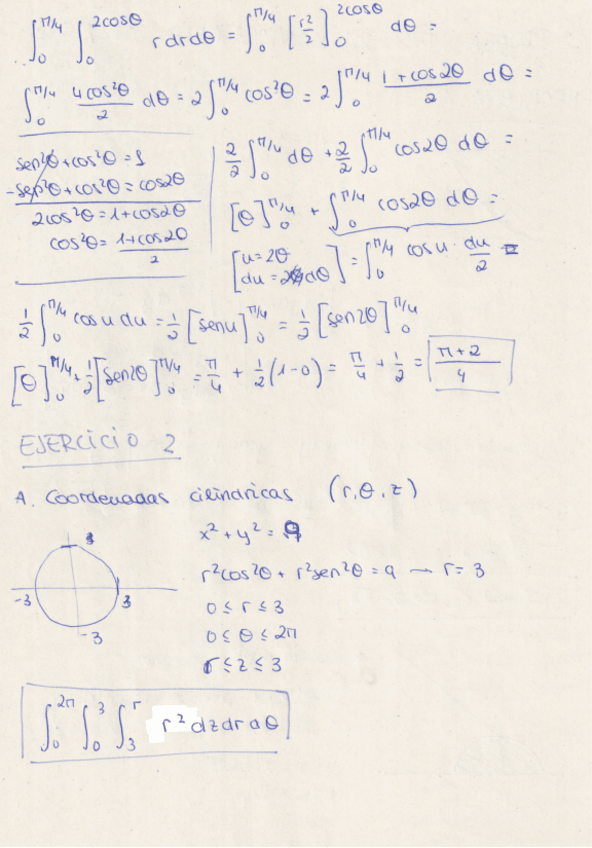 ∫₀^{π/4} ∫₀^{2cosθ} r dr dθ = ∫₀^{π/4} [r²/2]₀^{2cosθ} dθ =
∫₀^{π/4} 4cos²θ/2 dθ = 2∫₀^{π/4} cos²θ = 2∫₀^{π/4} 1+cos2θ/2 dθ =
sen²θ + cos²θ = 1
-sen²θ + cos²θ = cos2θ
2cos²θ = 1+cos2θ
cos²θ = 1+cos2θ/2
2/2 ∫₀^{π/4} dθ + 2/2 ∫₀^{π/4} cos2θ dθ =
[θ]₀^{π/4} + ∫₀^{π/4} cos2θ dθ =
[u=2θ
du=2dθ] = ∫₀^{π/4} cosu · du/2 =
1/2 ∫₀^{π/4} cosu du = 1/2 [senu]₀^{π/4} = 1/2 [sen2θ]₀^{π/4}
[θ]₀^{π/4} + 1/2 [sen2θ]₀^{π/4} = π/4 + 1/2 (1-0) = π/4 + 1/2 = π+2/4
EJERCICIO 2
A. Coordenadas cilíndricas (r, θ, z)
x² + y² = 9
r²cos²θ + r²sen²θ = 9 — r = 3
0 ≤ r ≤ 3
0 ≤ θ ≤ 2π
r ≤ z ≤ 3
3
-3
3
-3
∫₀^{2π} ∫₀^{3} ∫₃^{r} r² dz dr dθ